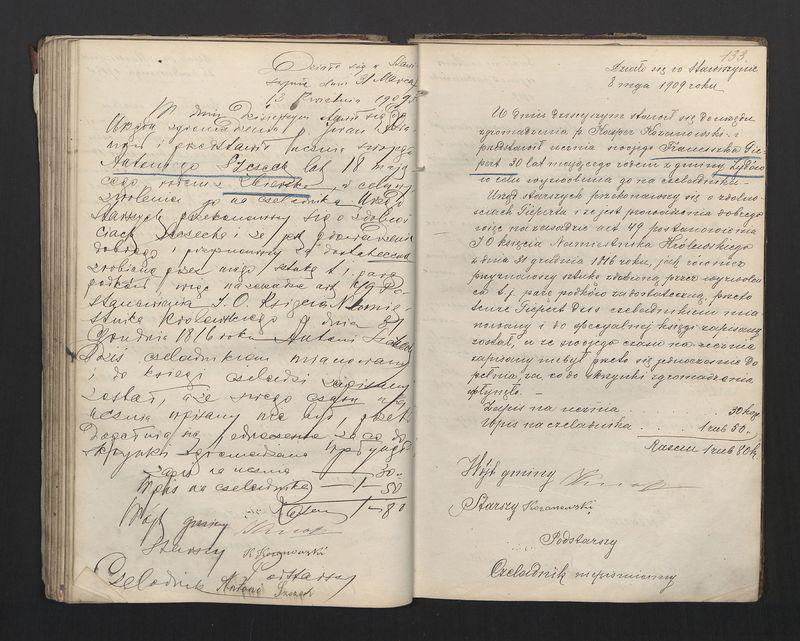 Działo się w Stawi-
szynie dnia 31 Marca
13 Kwietnia 1909 r.
W dniu dzisiejszym stawił się do
Urzędu zgromadzenia
i przedstawił ucznia swojego
Antoniego Szczech lat 18 mają
cego rodem z Zbierska, w celu wy
zwolenia go na czeladnika. Urząd
starszych przekonawszy się o zdolnoś
ciach Szczecha i że jest prowadzenia
dobrego, przyznawszy za dostateczną
zrobioną przez niego sztukę t. j. parę
podków, więc na zasadzie art. 49 Po
stanowienia J. O. Księcia Namie
stnika Królewskiego z dnia 31
Grudnia 1816 roku Antoni Szczech
Dziś czeladnikiem mianowany
i do księgi czeladzi zapisany
został, a że swego czasu na
ucznia wpisany nie był, przeto
Dopełnia się jednocześnie za co do
skrzynki zgromadzenia wpłynęło
Zapis na ucznia — 30
Wpis na czeladnika — 1 - 50
Razem 1 - 80
Wójt gminy
Starszy K Koranowski
Podstarszy
Czeladnik Antoni Szczech
133.
Działo się w Stawiszynie
8 maja 1909 roku
W dniu dzisiejszym stawił się do urzędu
zgromadzenia p. Kasper Koranowski i
przedstawił ucznia swojego Franciszka Gie
pert 20 lat mającego rodem z gminy Zydów
w celu wyzwolenia go na czeladnika.
Urząd starszych przekonawszy się o zdolno
ściach Gieperta i że jest prowadzenia dobrego
więc na zasadzie art 49 postanowienia
J O księcia Namiestnika Królewskiego
z dnia 31 grudnia 1816 roku, jak również
przyznawszy sztukę zrobioną przez wyzwoleń
ca t. j. parę podków za dostateczną, przeto
tenże Giepert Dziś czeladnikiem mia
nowany i do specyalnej księgi zapisany
został, a że swojego czasu na ucznia
zapisany nie był przeto się jednocześnie Do
pełnia, za co do skrzynki zgromadzenia
wpłynęło —
Zapis na ucznia . . . . 30 kop
Wpis na czeladnika . . . . 1 rub 50 "
Razem 1 rub 80 k.
Wójt gminy
Starszy Koranowski
Podstarszy
Czeladnik niepiśmienny